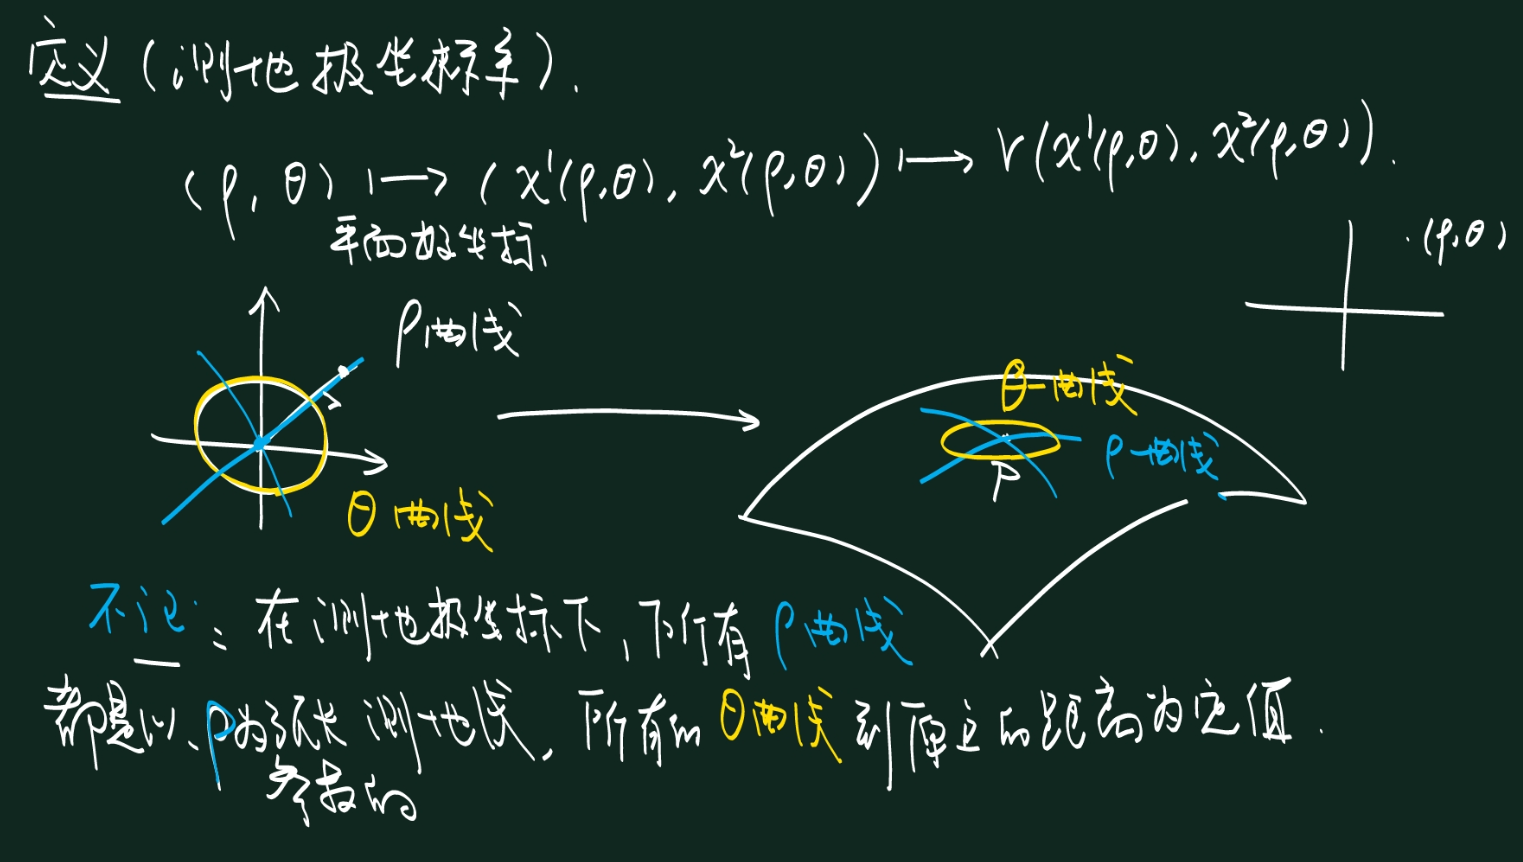 定义（测地极坐标系）.
(ρ, θ) ↦ (x¹(ρ,θ), x²(ρ,θ)) ↦ r(x¹(ρ,θ), x²(ρ,θ)).
平面极坐标.
·(ρ,θ)
ρ曲线
θ曲线
θ-曲线
ρ-曲线
P
：在测地极坐标下，所有ρ曲线
都是以ρ为弧长测地线，所有的θ曲线到原点的距离为定值.
参数的